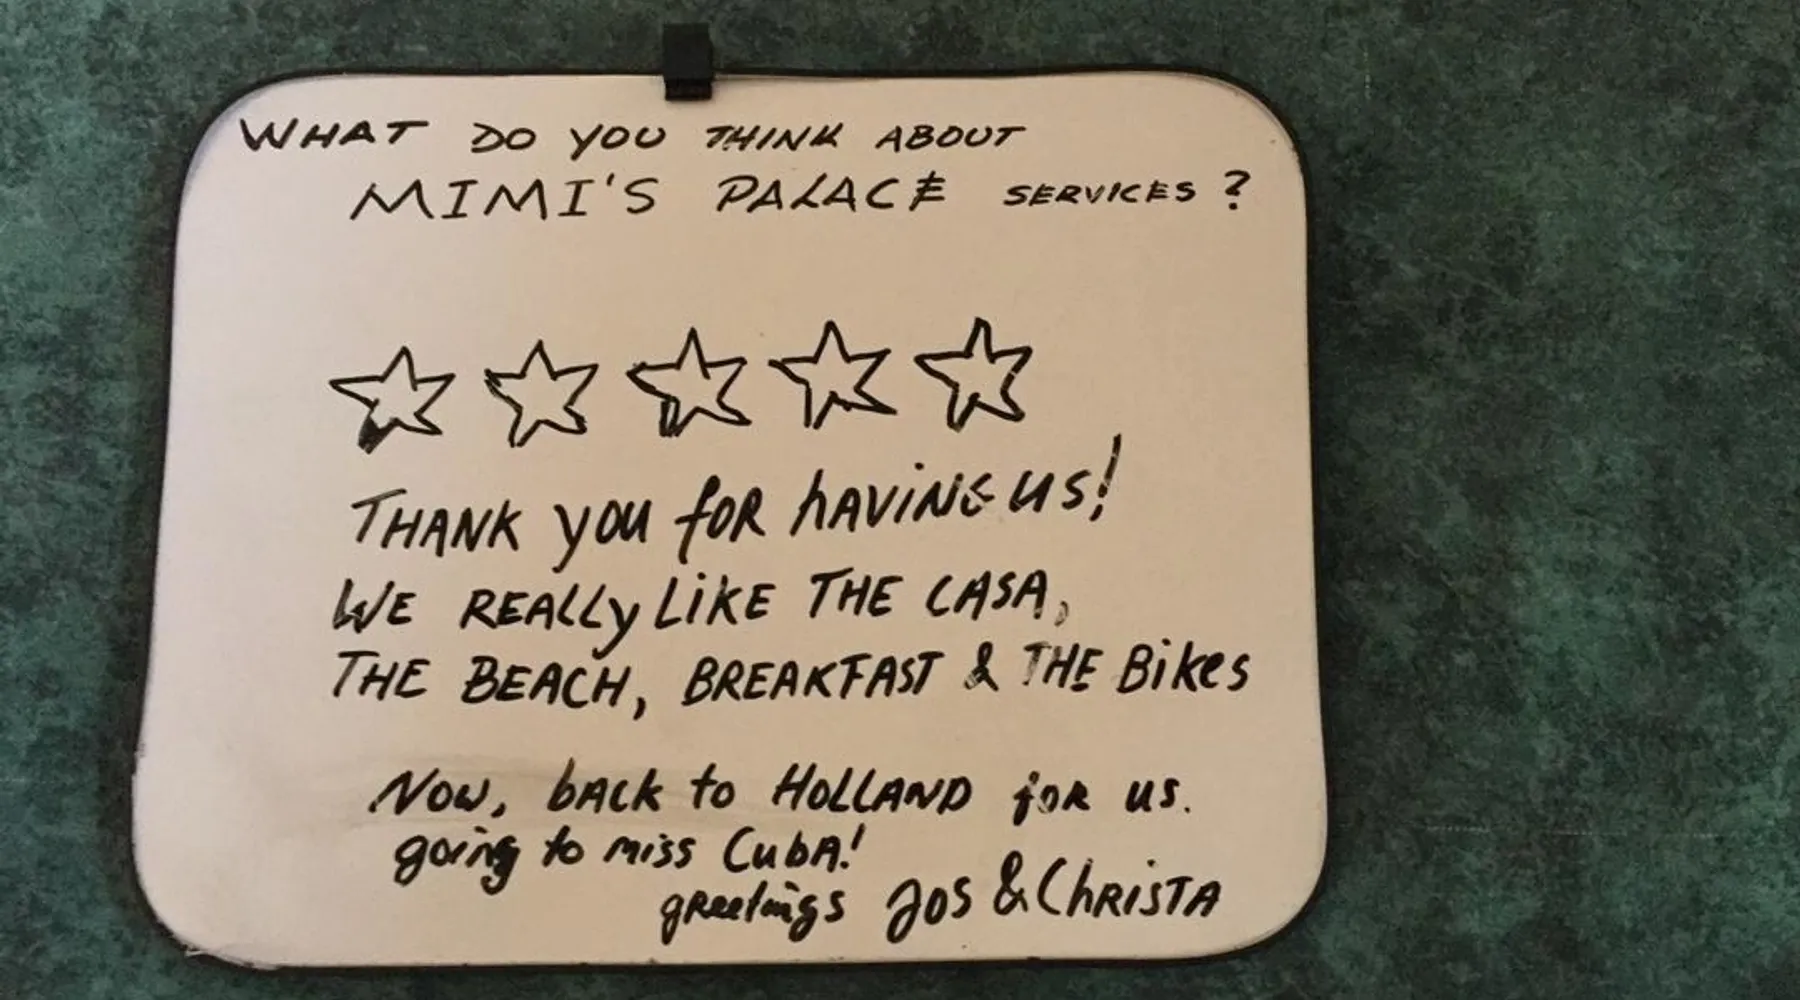 WHAT DO YOU THINK ABOUT
MIMI'S PALACE SERVICES?
THANK YOU FOR HAVING US!
WE REALLY LIKE THE CASA,
THE BEACH, BREAKFAST & THE BIKES
NOW, BACK TO HOLLAND FOR US.
going to miss CUBA!
greetings JOS & CHRISTA